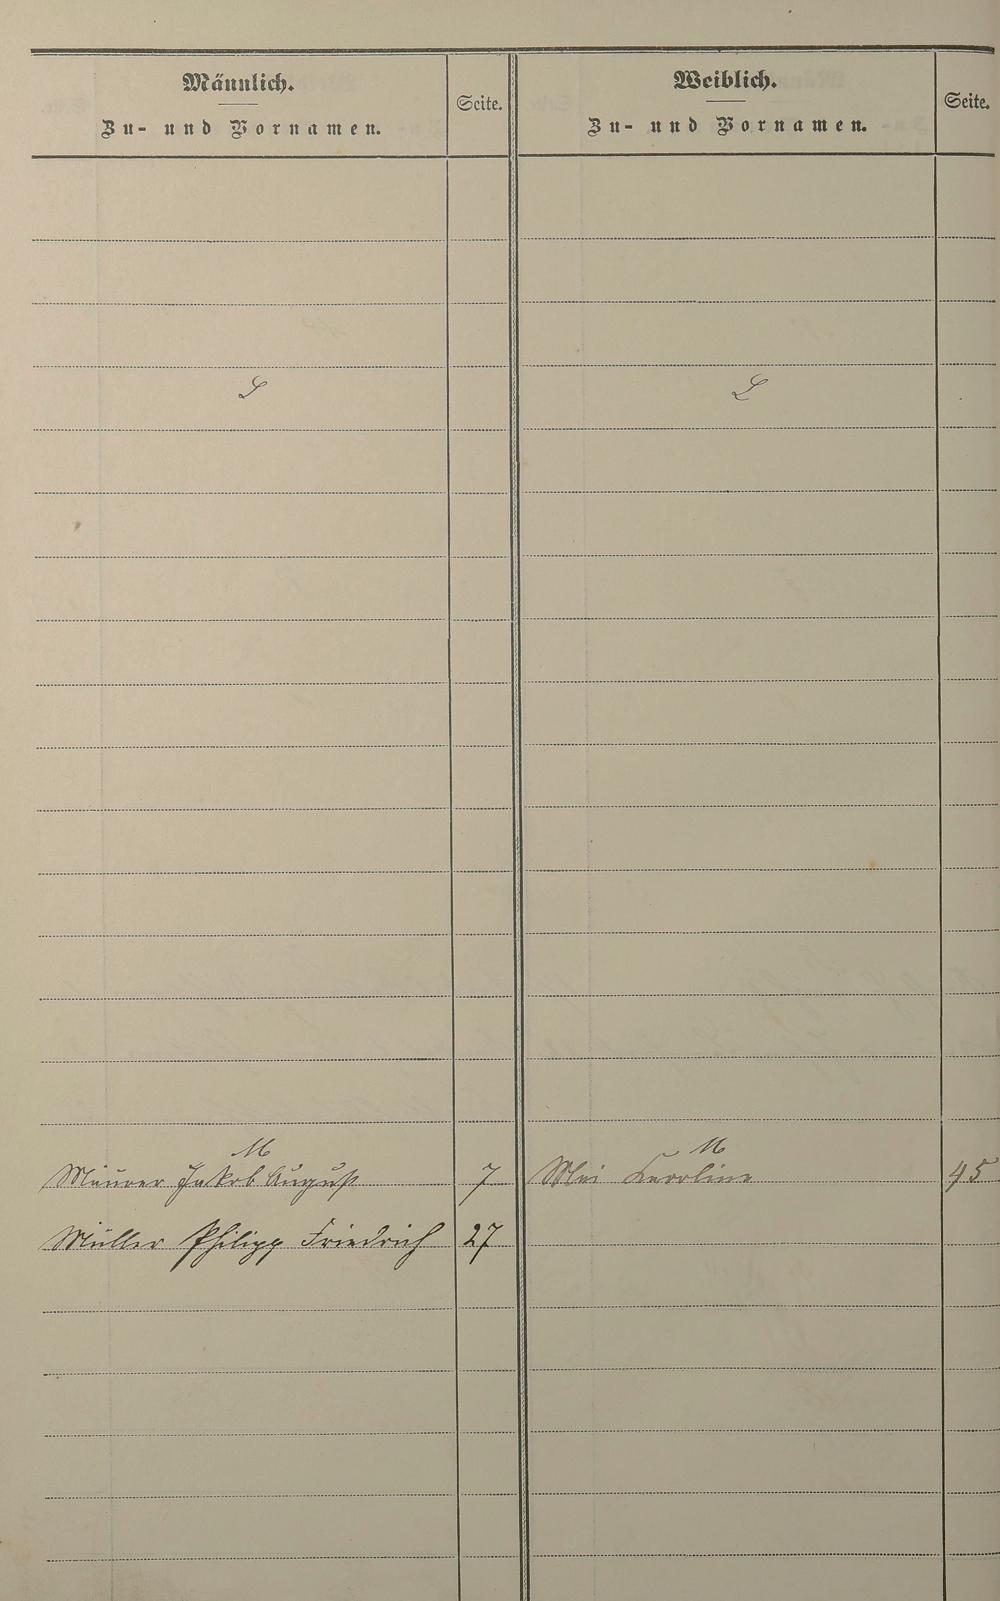 Männlich.
Zu- und Vornamen.
Seite.
Weiblich.
Zu- und Vornamen.
Seite.
L
L
M
M
Maurer Jakob August 7
Mai Karoline 45
Müller Philipp Friedrich 27